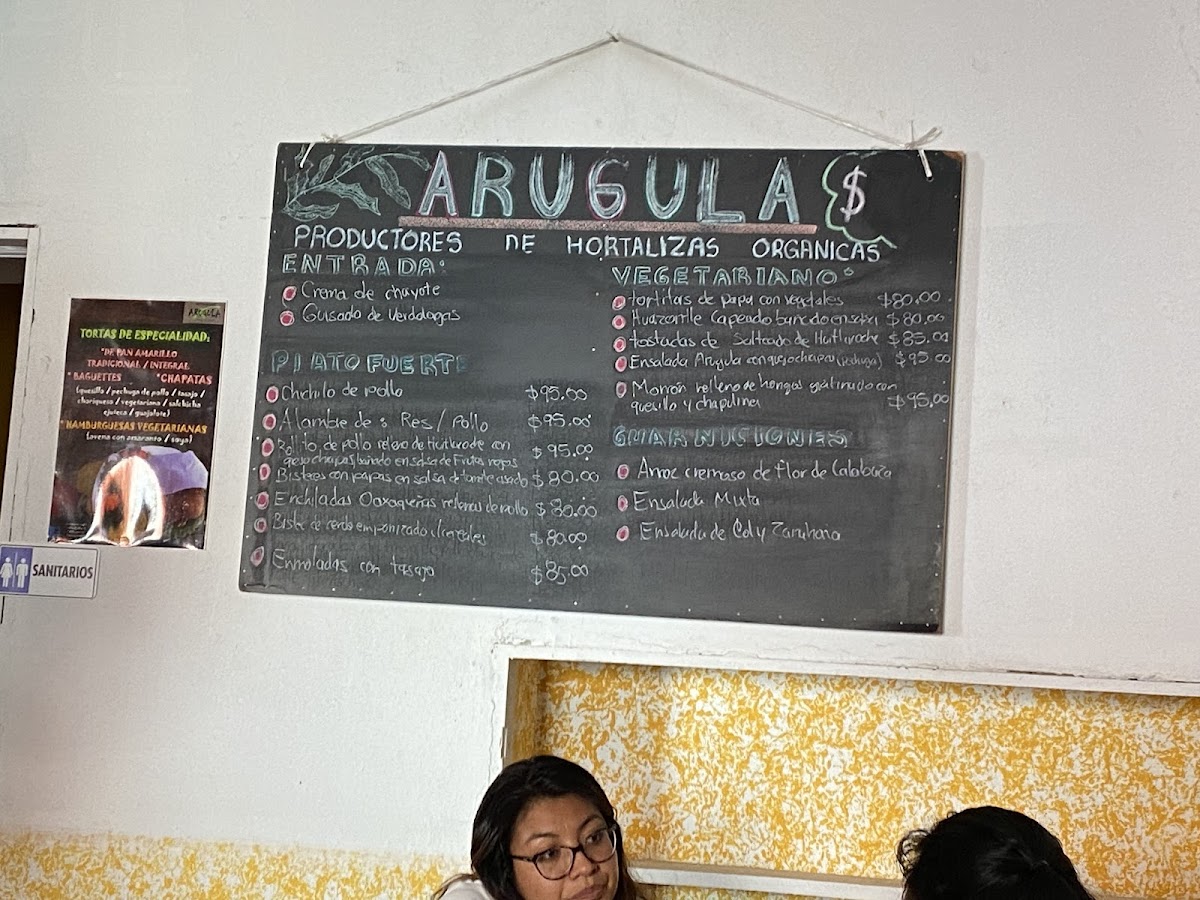 ARUGULA $
PRODUCTORES DE HORTALIZAS ORGANICAS
ENTRADA:
Crema de chayote
Guisado de Verdolagas
PLATO FUERTE
Chichilo de pollo $95.00
Alambre de: Res/Pollo $95.00
Rollito de pollo relleno de Huitlacoche con
queso chapas, bañado en salsa de Frutos rojos $95.00
Bisteces con papas en salsa de tomate asado $80.00
Enchiladas Oaxaqueñas rellenas de pollo $80.00
Bistec de cerdo empanizado $80.00
Enmoladas con tasajo $85.00
VEGETARIANO:
tortitas de papa con vegetales $80.00
Huazontle Capeado $80.00
tostadas de Salteado de Huitlacoche $85.00
Ensalada Arugula con quejo chapas (Pechuga) $95.00
Morrón relleno de hongos gratinado con
quesillo y chapulines $95.00
GUARNICIONES
Arroz cremoso de flor de Calabaza
Ensalada Mixta
Ensalada de Col y Zanahoria
ARUGULA
TORTAS DE ESPECIALIDAD:
*DE PAN AMARILLO
TRADICIONAL / INTEGRAL
* BAGUETTES *CHAPATAS
(quesillo / pechuga de pollo / tasajo /
choriqueso / vegetariana / salchicha
ejuteca / guajolote)
*HAMBURGUESAS VEGETARIANAS
(avena con amaranto / soya)
SANITARIOS